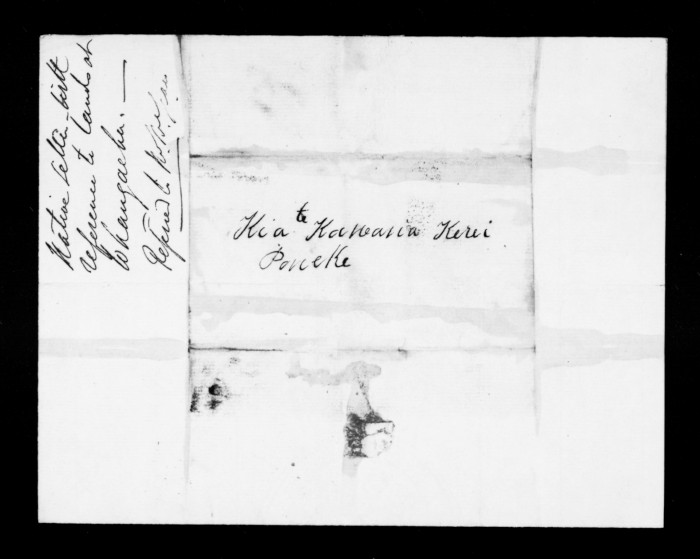 Native letter with
reference to lands at
Whangaehu. —
Refered to
Kia te Kawana Kerei
Poneke